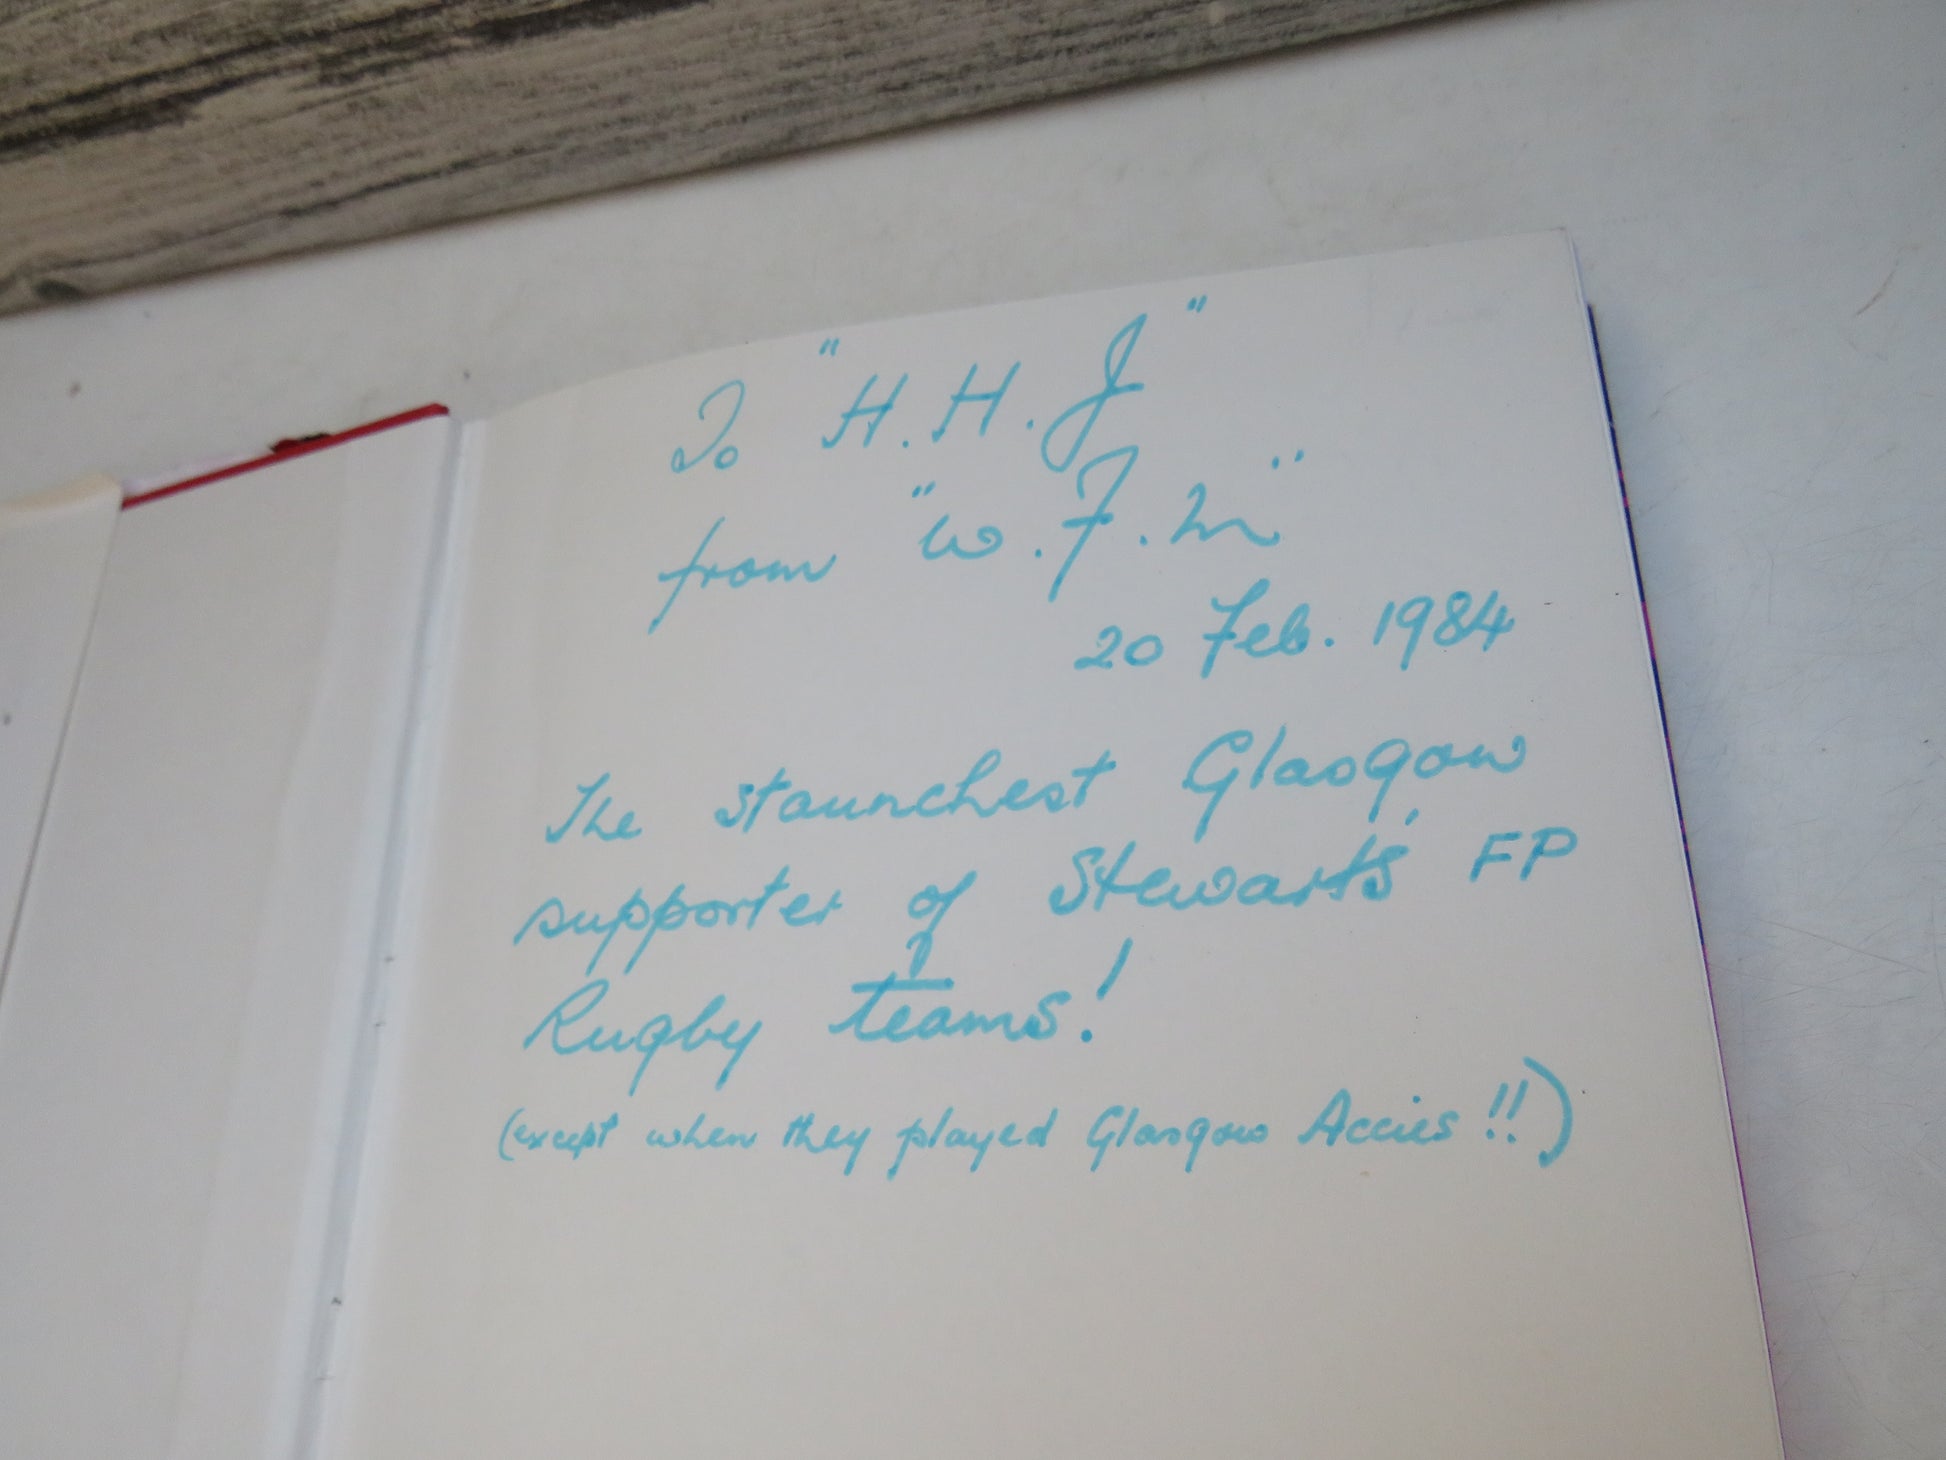 To "H.H.J"
from "W.F.M"
20 Feb. 1984
The staunchest Glasgow
supporter of Stewart's FP
Rugby teams!
(except when they played Glasgow Accies!!)